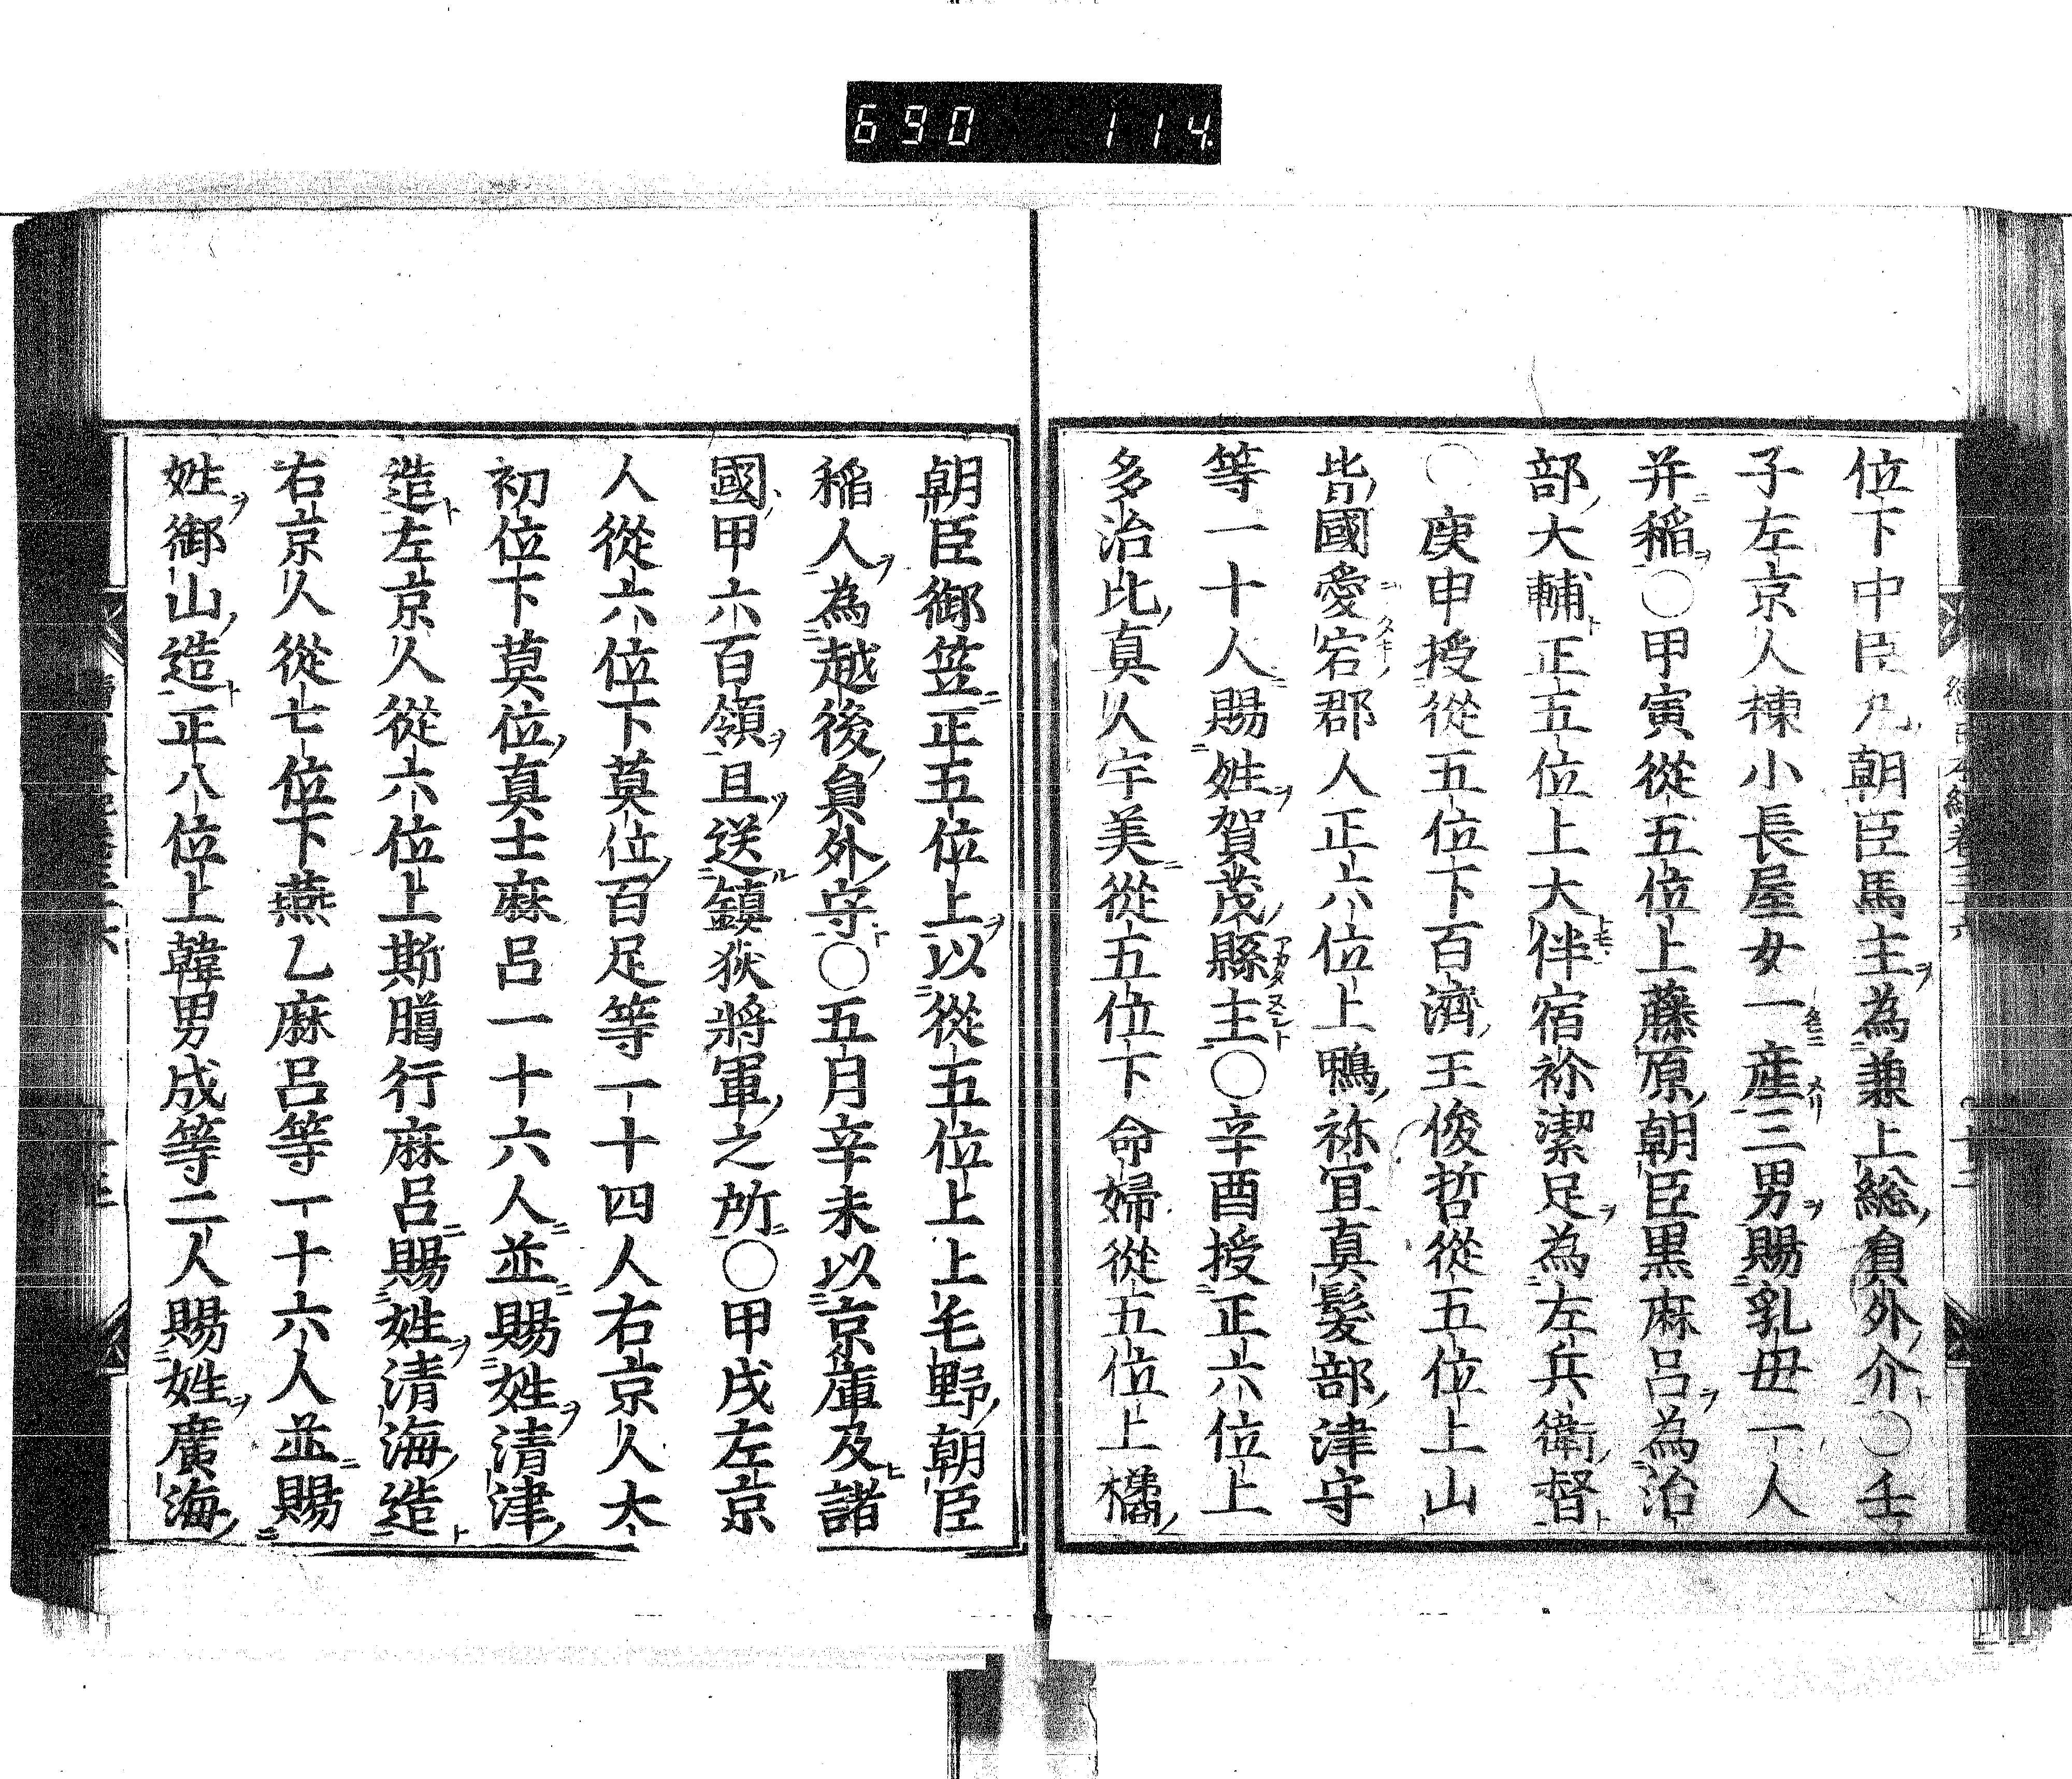 690 114
位下中臣丸朝臣馬主為兼上総員外介〇壬
子左京人棟小長屋女一産三男賜乳母一人
并稲〇甲寅從五位上藤原朝臣黒麻呂為治
部大輔正五位上大伴宿祢潔足為左兵衛督
〇庚申授從五位下百濟王俊哲從五位上山
背國愛宕郡人正六位上鴨祢宜真髪部津守
等一十人賜姓賀茂縣主〇辛酉授正六位上
多治比真人宇美從五位下命婦從五位上橘
朝臣御笠正五位上以從五位上上毛野朝臣
稲人為越後員外守〇五月辛未以京庫及諸
國甲六百領且送鎮狄將軍之所〇甲戌左京
人從六位下莫位百足等一十四人右京人大
初位下莫位真士麻呂一十六人並賜姓清津
造左京人從六位上斯﨟行麻呂賜姓清海造
右京人從七位下燕乙麻呂等一十六人並賜
姓御山造正八位上韓男成等二人賜姓廣海